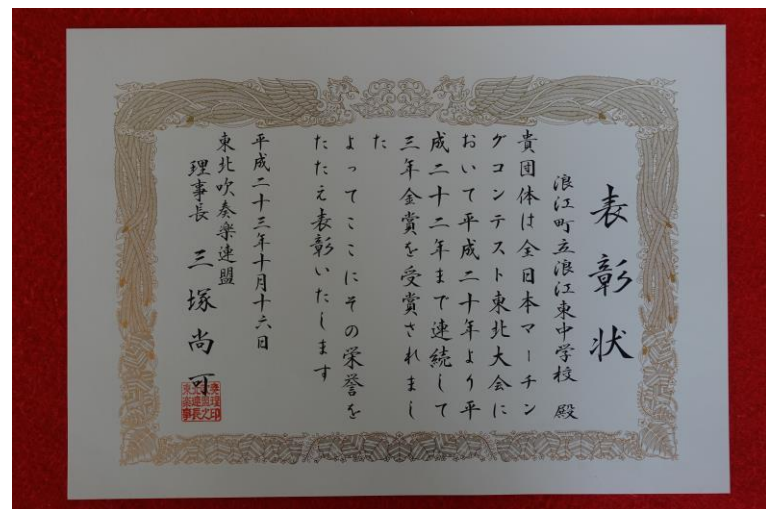 表彰状
浪江町立浪江東中学校 殿
貴団体は全日本マーチン
グコンテスト東北大会に
おいて平成二十年より平
成二十二年まで連続して
三年金賞を受賞されまし
た
よってここにその栄誉を
たたえ表彰いたします
平成二十三年十月十六日
東北吹奏楽連盟
理事長 三塚尚可